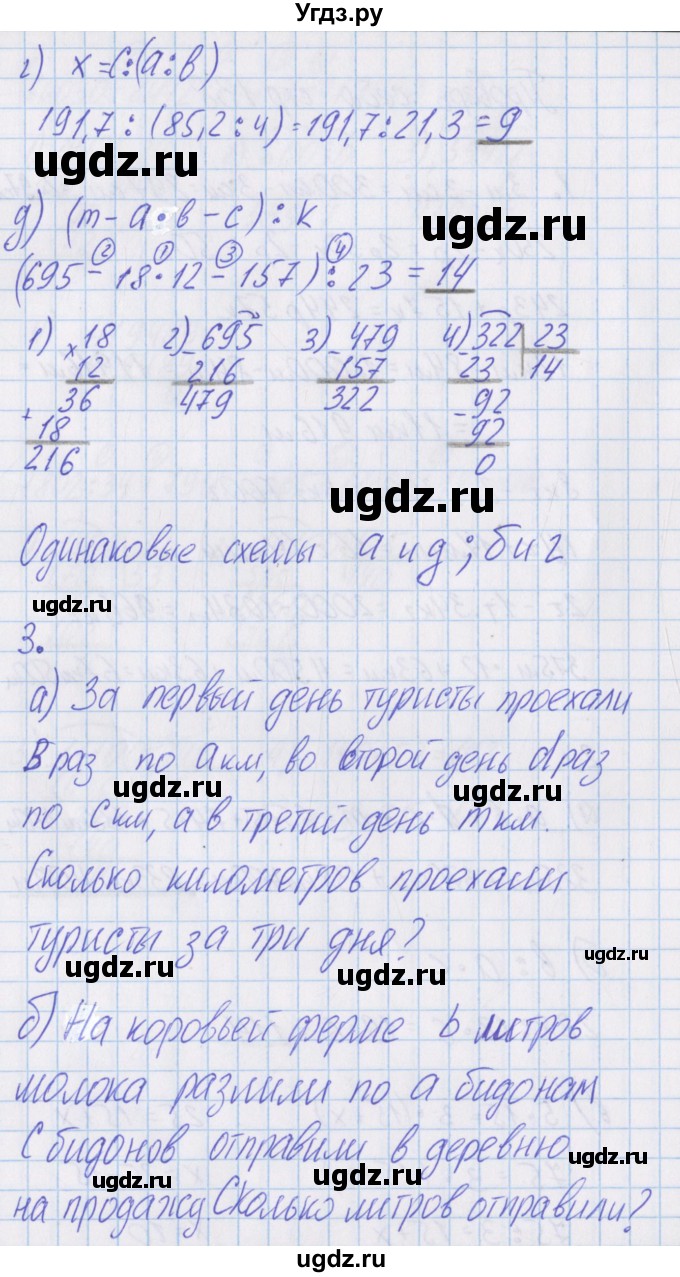 Угдз.ру
г) x=c:(a:в)
191,7:(85,2:4)=191,7:21,3=9
ugdz.ru ugdz.ru
д) (m-a·в-c):к
ugdz.ru
2 1 3 4
(695-18·12-157):23=14
1) 18 2) 695 3) 479 4) 322 23
× 12 - 216 - 157 - 23 14
36 479 322 - 92
+ 18 92
216 0
ugdz.ru
Одинаковые схемы а и д; б и г
ugdz.ru
3.
а) За первый день туристы проехали
в раз по а км, во второй день d раз
ugdz.ru ugdz.ru
по c км, а в третий день m км.
Сколько километров проехали
туристы за три дня?
ugdz.ru ugdz.ru ugdz.ru
б) На коровьей ферме b литров
молока разлили по а бидонам
С бидонов отправили в деревню
ugdz.ru ugdz.ru ugdz.ru
на продажу Сколько литров отправили?
ugdz.ru